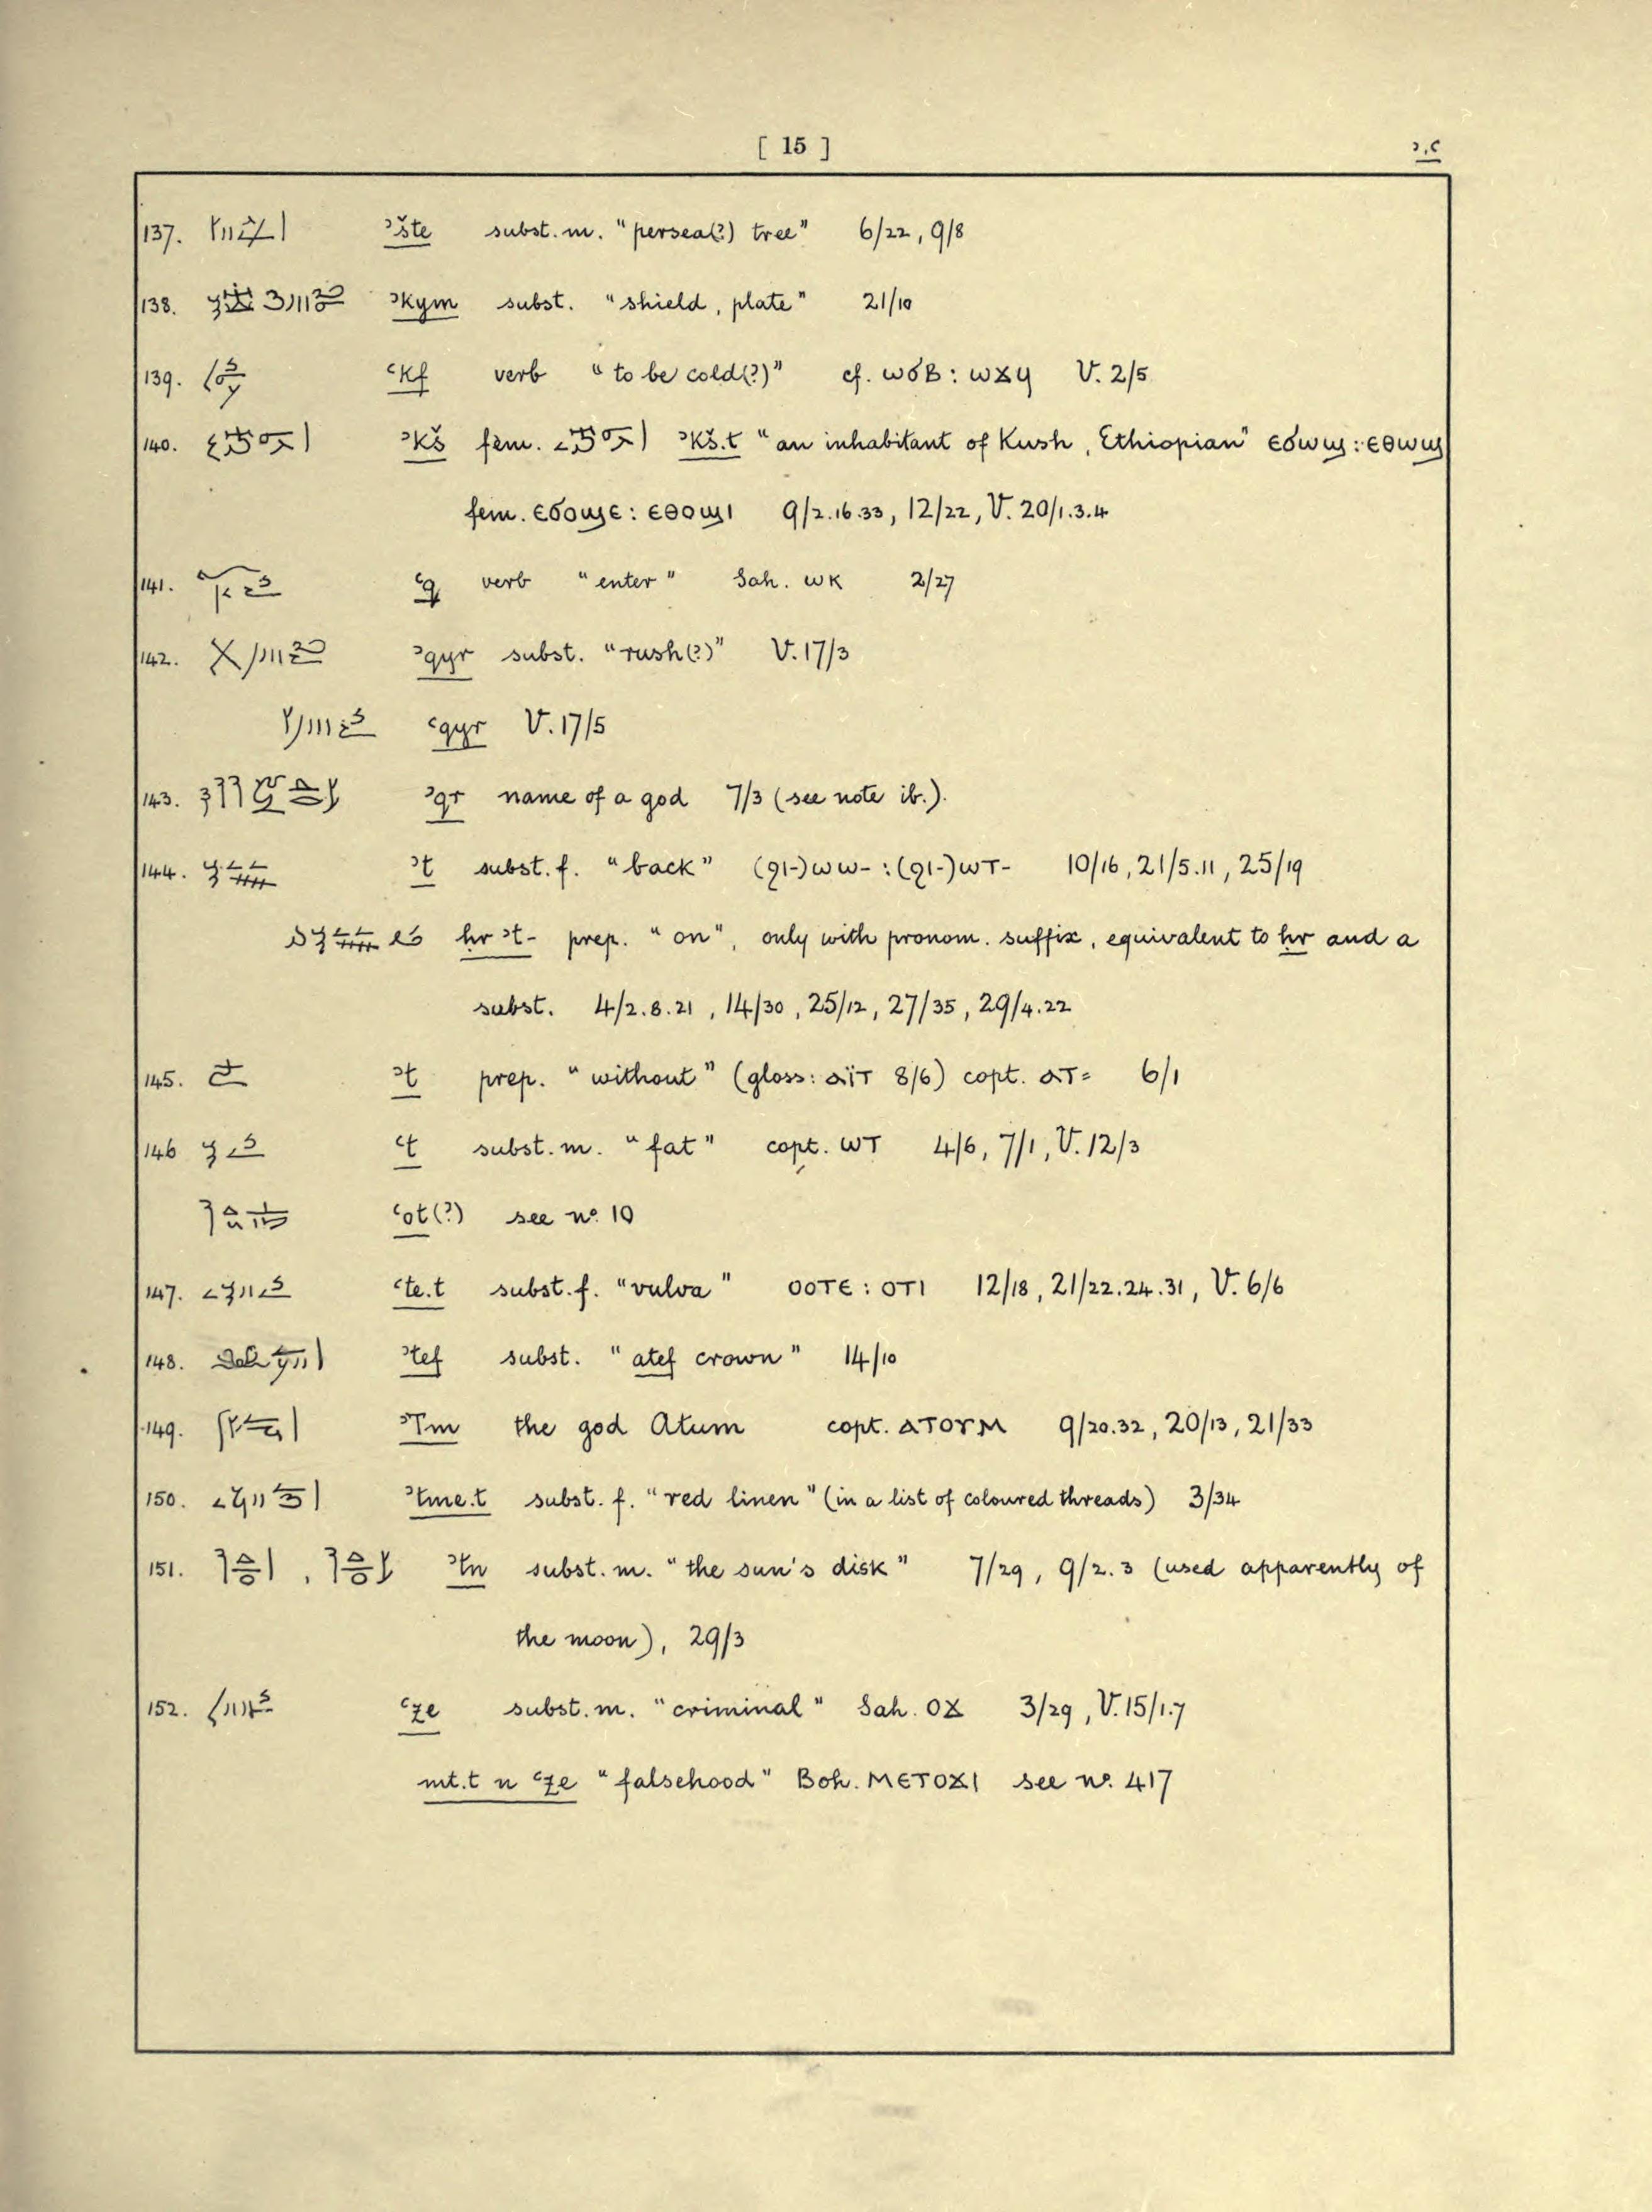 [ 15 ] ꜣ,ꜥ
137. ꜣšte subst. m. "persea(?) tree" 6/22, 9/8
138. ꜣkym subst. "shield, plate" 21/10
139. ꜥkf verb "to be cold(?)" cf. ⲱϭⲃ : ⲱϫϥ V. 2/5
140. ꜣkš fem. ꜣkš.t "an inhabitant of Kush, Ethiopian" ⲉϭⲱϣ : ⲉⲑⲱϣ
fem. ⲉϭⲟϣⲉ : ⲉⲑⲟϣⲓ 9/2.16.33, 12/22, V. 20/1.3.4
141. ꜥq verb "enter" Sah. ⲱⲕ 2/27
142. ꜣqyr subst. "rush(?)" V. 17/3
ꜥqyr V. 17/5
143. ꜣqr name of a god 7/3 (see note ib.).
144. ꜣt subst. f. "back" (ϩⲓ-)ⲱⲱ- : (ϩⲓ-)ⲱⲧ- 10/16, 21/5.11, 25/19
ḥr ꜣt- prep. "on", only with pronom. suffix, equivalent to ḥr and a
subst. 4/2.8.21, 14/30, 25/12, 27/35, 29/4.22
145. ꜣt prep. "without" (gloss: ⲁⲓ̈ⲧ 8/6) copt. ⲁⲧ= 6/1
146 ꜥt subst. m. "fat" copt. ⲱⲧ 4/6, 7/1, V. 12/3
ꜥot(?) see nº. 10
147. ꜥte.t subst. f. "vulva" ⲟⲟⲧⲉ : ⲟⲧⲓ 12/18, 21/22.24.31, V. 6/6
148. ꜣtef subst. "atef crown" 14/10
149. ꜣTm the god Atum copt. ⲁⲧⲟⲩⲙ 9/20.32, 20/13, 21/33
150. ꜣtme.t subst. f. "red linen" (in a list of coloured threads) 3/34
151. , ꜣtn subst. m. "the sun's disk" 7/29, 9/2.3 (used apparently of
the moon), 29/3
152. ꜥze subst. m. "criminal" Sah. ⲟϫ 3/29, V. 15/1.7
mt.t n ꜥze "falsehood" Boh. ⲙⲉⲧⲟϫⲓ see nº. 417